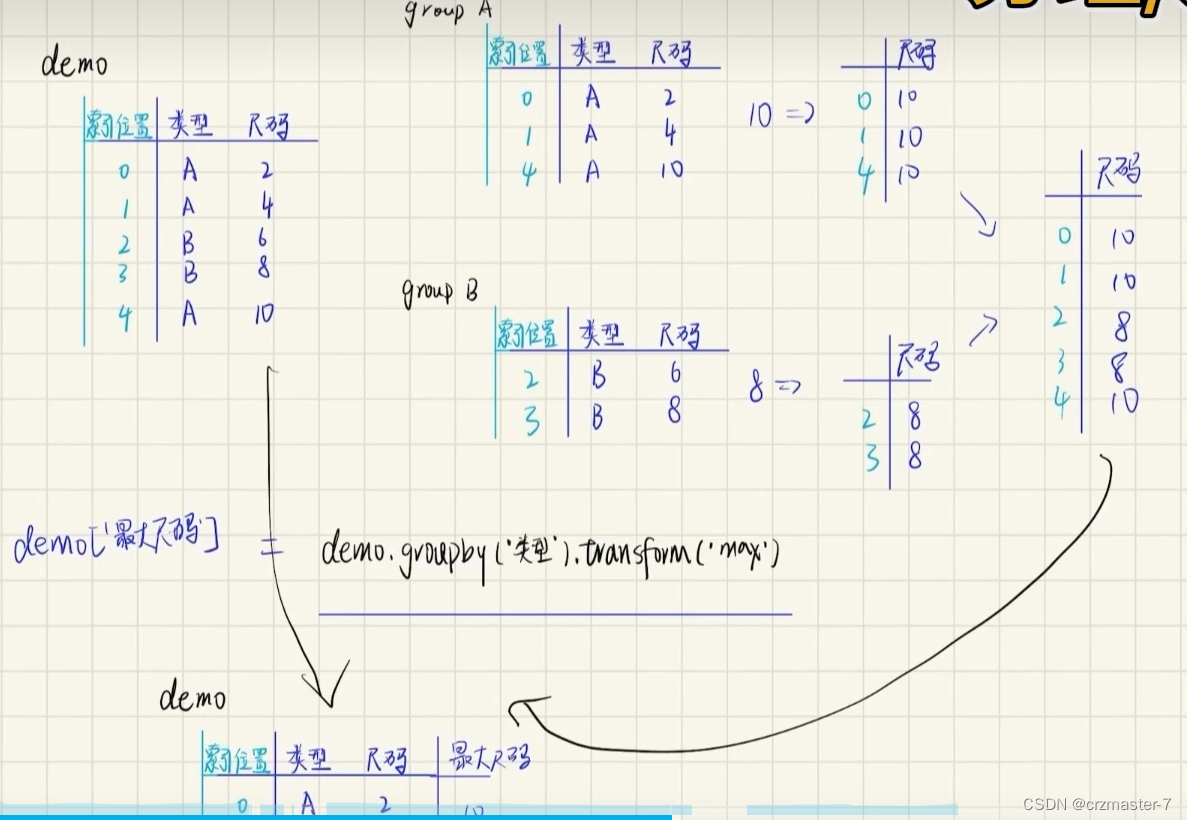 group A
demo
索引位置 类型 尺码
0 A 2
1 A 4
2 B 6
3 B 8
4 A 10
索引位置 类型 尺码
0 A 2
1 A 4
4 A 10
10 =>
尺码
0 10
1 10
4 10
group B
索引位置 类型 尺码
2 B 6
3 B 8
8 =>
尺码
2 8
3 8
尺码
0 10
1 10
2 8
3 8
4 10
demo['最大尺码'] = demo.groupby('类型').transform('max')
demo
索引位置 类型 尺码 最大尺码
0 A 2 10
CSDN @crzmaster-7